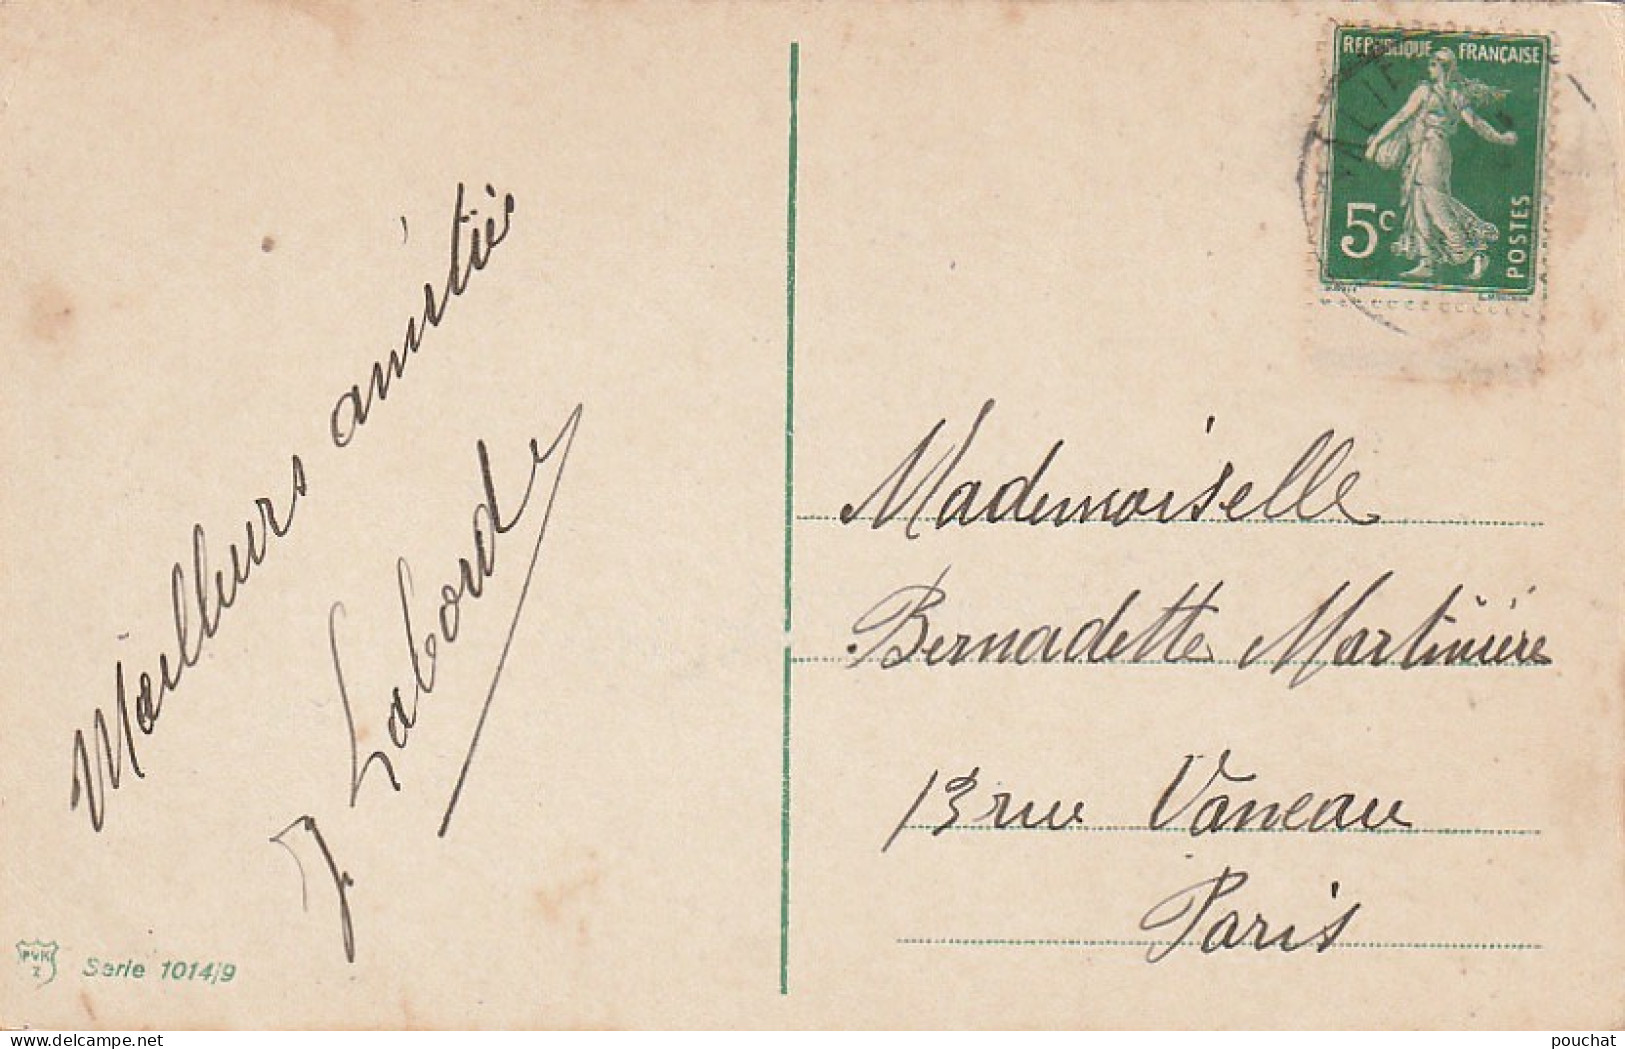 Meilleurs amitiés
J Laborde
RÉPUBLIQUE FRANÇAISE
5c
POSTES
Mademoiselle
Bernadette Martinière
13 rue Vaneau
Paris
PVK
Z
Serie 1014/9
www.delcampe.net
pouchat